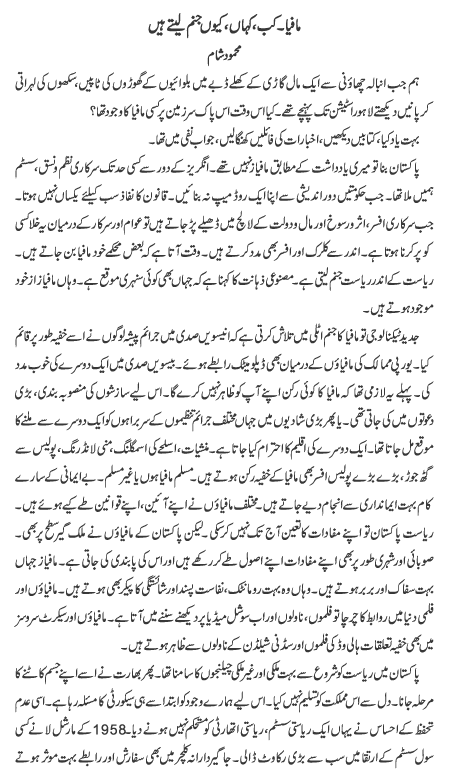 مافیا۔ کب، کہاں، کیوں جنم لیتے ہیں
محمود شام
ہم جب انبالہ چھاؤنی سے ایک مال گاڑی کے کھلے ڈبے میں بلوائیوں کے گھوڑوں کی ٹاپیں، سکھوں کی لہراتی
کرپانیں دیکھتے لاہور اسٹیشن تک پہنچے تھے۔ کیا اس وقت اس پاک سر زمین پر کسی مافیا کا وجود تھا؟
بہت یاد کیا، کتابیں دیکھیں، اخبارات کی فائلیں کھنگالیں، جواب نفی میں تھا۔
پاکستان بنا تو میری یادداشت کے مطابق مافیاز نہیں تھے۔ انگریز کے دور سے کسی حد تک سرکاری نظم ونسق، سسٹم
ہمیں ملا تھا۔ جب حکومتیں دور اندیشی سے اپنا ایک روڈ میپ نہ بنائیں۔ قانون کا نفاذ سب کیلئے یکساں نہیں ہوتا۔
جب سرکاری افسر، اثر و رسوخ اور مال و دولت کے لالچ میں ڈھیلے پڑ جاتے ہیں تو عوام اور سرکار کے درمیان یہ خلا کسی
کو پر کرنا ہوتا ہے۔ اندر سے کلرک اور افسر بھی مدد کرتے ہیں۔ وقت آتا ہے کہ بعض محکمے خود مافیا بن جاتے ہیں۔
ریاست کے اندر ریاست جنم لیتی ہے۔ مصنوعی ذہانت کا کہنا ہے کہ جہاں بھی کوئی سنہری موقع ہے۔ وہاں مافیاز از خود
موجود ہوتے ہیں۔
جدید ٹیکنالوجی تو مافیا کا جنم اٹلی میں تلاش کرتی ہے کہ انیسویں صدی میں جرائم پیشہ لوگوں نے اسے خفیہ طور پر قائم
کیا۔ یورپی ممالک کی مافیاؤں کے درمیان بھی ڈپلومیٹک رابطے ہوئے۔ بیسویں صدی میں ایک دوسرے کی خوب مدد
کی۔ پہلے یہ لازمی تھا کہ مافیا کا کوئی رکن اپنے آپ کو ظاہر نہیں کرے گا۔ اس لیے سازشوں کی منصوبہ بندی، بڑی
دعوتوں میں کی جاتی تھی۔ یا پھر بڑی شادیوں میں جہاں مختلف جرائم تنظیموں کے سربراہوں کو ایک دوسرے سے ملنے کا
موقع مل جاتا تھا۔ ایک دوسرے کی اقلیم کا احترام کیا جاتا ہے۔ منشیات، اسلحے کی اسمگلنگ، منی لانڈرنگ، پولیس سے
گٹھ جوڑ، بڑے بڑے پولیس افسر بھی مافیا کے خفیہ رکن ہوتے ہیں۔ مسلم مافیا ہوں یا غیر مسلم۔ بے ایمانی کے سارے
کام بہت ایمانداری سے انجام دیے جاتے ہیں۔ مختلف مافیاؤں نے اپنے آئین، اپنے قوانین طے کیے ہوئے ہیں۔
ریاست پاکستان تو اپنے مفادات کا تعین آج تک نہیں کر سکی۔ لیکن پاکستان کے مافیاؤں نے ملک گیر سطح پر بھی۔
صوبائی اور شہری طور پر بھی اپنے مفادات اپنے اصول طے کر رکھے ہیں اور اس کی پابندی کی جاتی ہے۔ مافیاز جہاں
بہت سفاک اور بربر ہوتے ہیں۔ وہاں وہ بہت رومانٹک، نفاست پسند اور شائستگی کا پیکر بھی ہوتے ہیں۔ مافیاؤں اور
فلمی دنیا میں روابط کا چرچا تو فلموں، ناولوں اور اب سوشل میڈیا پر دیکھنے سننے میں آتا ہے۔ مافیاؤں اور سیکرٹ سروسز
میں بھی خفیہ تعلقات ہالی وڈ کی فلموں اور سڈنی شیلڈن کے ناولوں سے ظاہر ہوتے ہیں۔
پاکستان میں ریاست کو شروع سے بہت ملکی اور غیر ملکی چیلنجوں کا سامنا تھا۔ پھر بھارت نے اسے اپنے جسم کا کٹنے کا
مرحلہ جانا۔ دل سے اس مملکت کو تسلیم نہیں کیا۔ اس لیے ہمارے وجود کو ابتدا سے ہی سیکورٹی کا مسئلہ رہا ہے۔ اسی عدم
تحفظ کے احساس نے یہاں ایک ریاستی سسٹم، ریاستی اتھارٹی کو مستحکم نہیں ہونے دیا۔ 1958 کے مارشل لا نے کسی
سول سسٹم کے ارتقا میں سب سے بڑی رکاوٹ ڈالی۔ جاگیردارانہ کلچر میں بھی سفارش اور رابطے بہت موثر ہوتے